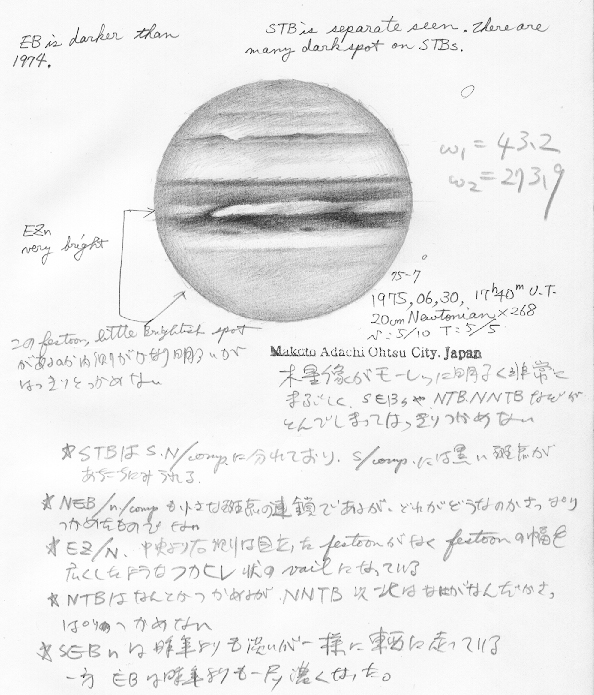 EB is darker than
1974.
STB is separate seen. There are
many dark spot on STBs.
ω₁ = 43.2
ω₂ = 273.9
EZn
very bright
75-7
1975, 06, 30, 17ʰ40ᵐ U.T.
20cm Newtonian ×268
5/10 T: 5/5
この festoon, little brightish spot
があるが内側がかなり明るいが
はっきりとつかめない
Makoto Adachi Ohtsu City. Japan
木星像がモーレツに明るく非常に
まぶしく、SEBsや、NTB.NNTBなどが
とんでしまってはっきりつかめない
☆STBはS.N/comp.に分れており、S/comp.には黒い斑点が
あちこちにみうれる.
☆NEB/n/comp も小さな斑点の連鎖であるが、どれがどうなのかさっぱり
つかめたものでない
☆EZ/N、中央より右よりは目立った festoonがなく festoonの幅を
広くしたようなフカヒレ状の vailになっている
☆NTBはなんとかつかめるが、NNTB以北はなにがなんだかさっ
ぱりつかめない
☆SEBnは昨年よりも淡いが一様に東西に走っている
一方 EBは昨年よりも一層濃くなった。